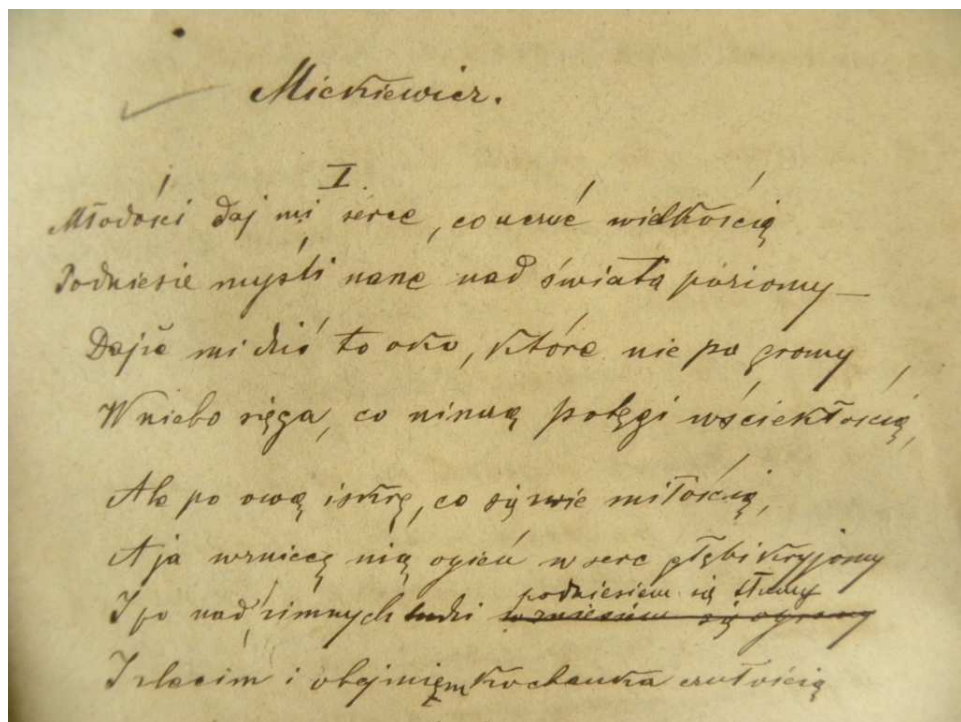 Mickiewicz.
I.
Młodości daj mi serce, co uczuć wielkością
Podniesie myśli nasze nad świata poziomy—
Dajże mi dziś to oko, które nie po gromy
W niebo sięga, co winną potęgi wściekłością,
Ale po ową iskrę, co się zwie miłością,
A ja wzniecę nią ogień w serc głębi kryjomy
podniesiem się tłumy
I po nad zimnych ludzi wzniesiem się ogromy
I zlecim i obejmięm kochanka czułością